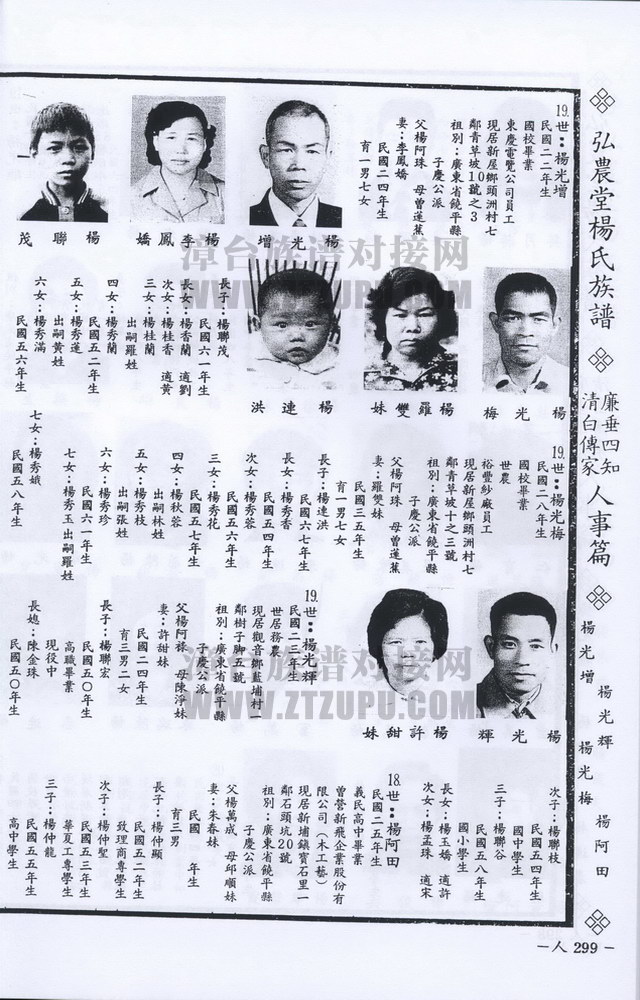 弘農堂楊氏族譜
廉垂四知
清白傳家
人事篇
楊光增
楊光輝
楊光梅
楊阿田
－人299－
19.世：楊光增
民國二二年生
國校畢業
東慶電覽公司員工
現居新屋鄉頭洲村七
鄰青草坡10號之3
祖別：廣東省饒平縣
子慶公派
父楊阿珠 母曾蓮蕉
妻：李鳳嬌
民國二四年生
育一男七女
增光楊
嬌鳳李楊
茂聯楊
長子：楊聯茂
民國六一年生
長女：楊香蘭 適劉
次女：楊桂香 適黃
三女：楊桂蘭
出嗣羅姓
四女：楊秀蘭
民國五二年生
五女：楊秀蓮
出嗣黃姓
六女：楊秀滿
民國五六年生
七女：楊秀娥
民國五八年生
梅光楊
妹雙羅楊
洪連楊
19.世：楊光梅
民國二八年生
國校畢業
世農
裕豐紗廠員工
現居新屋鄉頭洲村七
鄰青草坡十之三號
祖別：廣東省饒平縣
子慶公派
父楊阿珠 母曾蓮蕉
妻：羅雙妹
民國三五年生
育一男七女
長子：楊連洪
民國六七年生
長女：楊秀香
民國五四年生
次女：楊秀蓉
民國五六年生
三女：楊秀花
民國五七年生
四女：楊秋蓉
出嗣林姓
五女：楊秀枝
出嗣張姓
六女：楊秀珍
民國六一年生
七女：楊秀玉出嗣羅姓
輝光楊
妹甜許楊
19.世：楊光輝
民國二一年生
世居務農
現居觀音鄉藍埔村一
鄰樹子脚五號
祖別：廣東省饒平縣
子慶公派
父楊阿祿 母陳淨妹
妻：許甜妹
民國二四年生
育三男二女
長子：楊聯宏
民國五〇年生
高職畢業
現役中
長媳：陳金珠
民國五〇年生
次子：楊聯枝
民國五四年生
國中學生
三子：楊聯谷
民國五八年生
國小學生
長女：楊玉嬌 適許
次女：楊孟珠 適宋
18.世：楊阿田
民國二五年生
義民高中畢業
曾營新飛企業股份有
限公司（木工藝）
現居新埔鎮寶石里一
鄰石頭坑20號
祖別：廣東省饒平縣
子慶公派
父楊萬成 母邱順妹
妻：朱春妹
民國 年生
育三男
長子：楊仲顯
民國五二年生
致理商專學生
次子：楊仲聖
民國五三年生
華夏工專學生
三子：楊仲龍
民國五五年生
高中學生
漳台族谱对接网
WWW.ZTZUPU.COM
漳台族谱对接网
WWW.ZTZUPU.COM